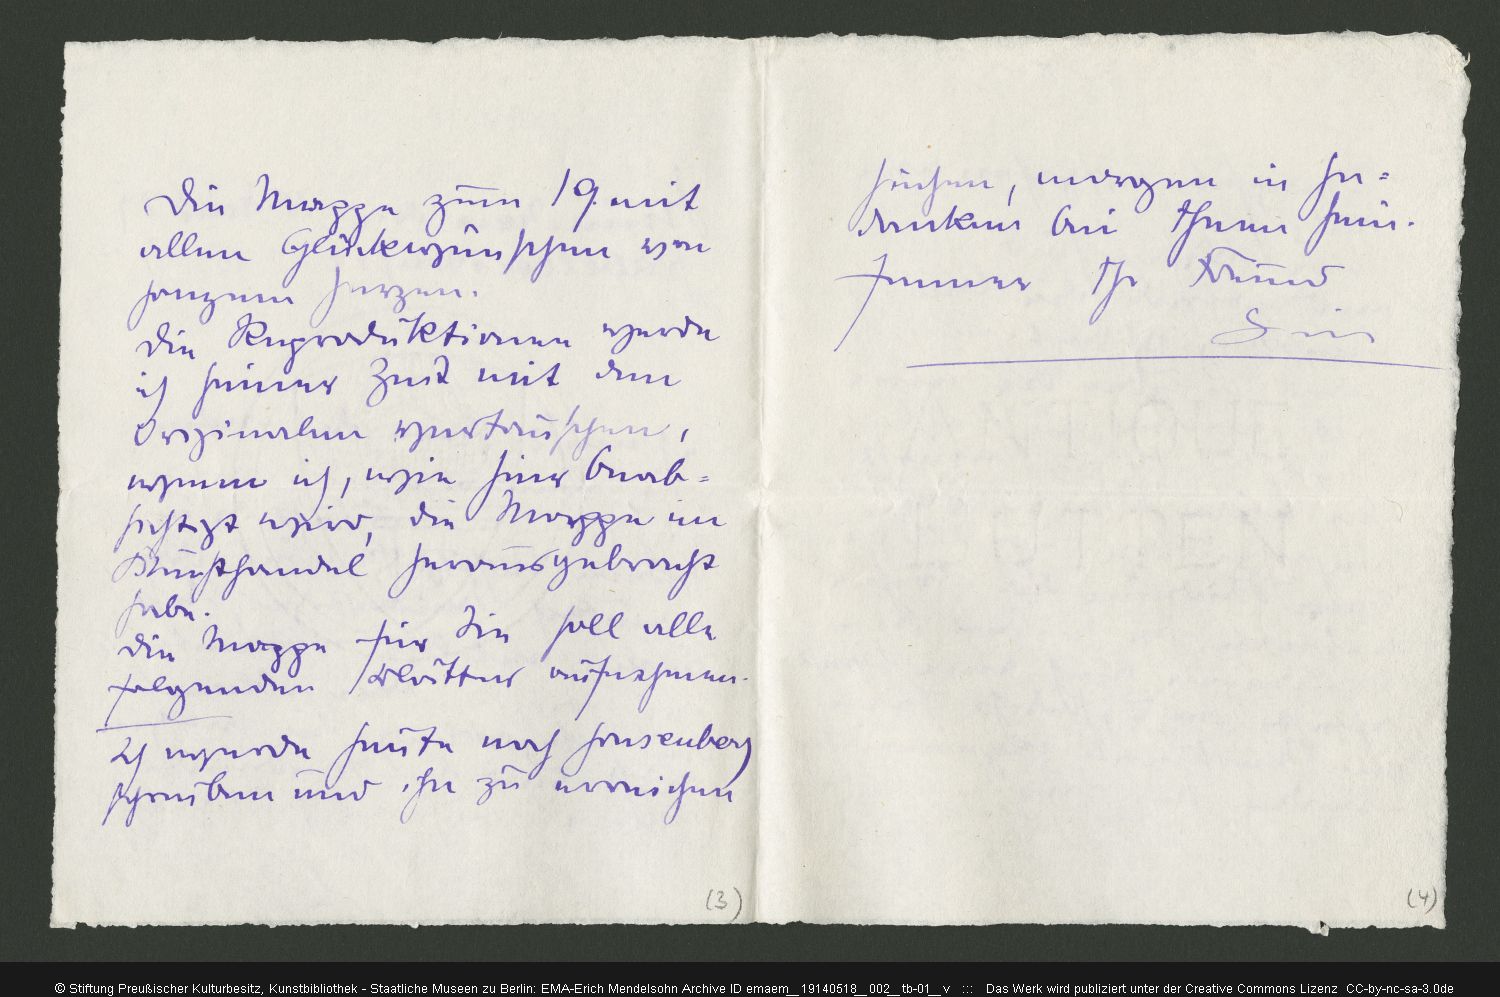 Die Mappe zum 19. mit
allen Glückwünschen von
ganzem Herzen.
Die Reproduktionen werde
ich seiner Zeit mit den
Originalen vertauschen,
wenn ich, wie hier beab=
sichtigt wird, die Mappe im
Kunsthandel herausgebracht
habe.
Die Mappe für Sie soll alle
folgenden Blätter aufnehmen.
Ich werde heute noch
schreiben und ihn zu erreichen
suchen, morgen in Ge=
danken bei Ihnen sein.
Immer Ihr Freund
(3)
(4)
© Stiftung Preußischer Kulturbesitz, Kunstbibliothek - Staatliche Museen zu Berlin: EMA-Erich Mendelsohn Archive ID emaem__19140518__002__tb-01__v ::: Das Werk wird publiziert unter der Creative Commons Lizenz CC-by-nc-sa-3.0de